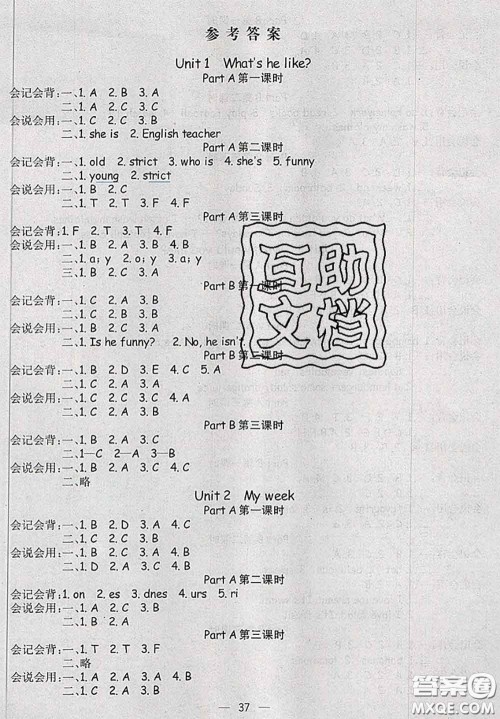 参考答案
Unit 1 What's he like?
Part A 第一课时
会记会背:一、1. A 2. B 3. A
二、1. A 2. C 3. C
会说会用:一、1. B 2. C 3. B
二、1. she is 2. English teacher
Part A 第二课时
会记会背:一、1. old 2. strict 3. who is 4. she's 5. funny
二、1. young 2. strict
会说会用:一、1. B 2. C
二、1. T 2. T 3. F 4. F
Part A 第三课时
会记会背:1. F 2. T 3. T 4. F 5. F
会说会用:一、1. B 2. A 3. C 4. B
二、1. a; y 2. o; y 3. a; y
三、1. B 2. C 3. A
Part B 第一课时
会记会背:一、1. C 2. A 3. B
会说会用:一、1. C 2. A 3. B
二、1. Is he funny? 2. No, he isn't.
Part B 第二课时
会记会背:一、1. B 2. D 3. E 4. C 5. A
二、1. C 2. A 3. B
会说会用:一、1. B 2. C 3. A
二、1. C 2. A 3. B
Part B 第三课时
会记会背:一、1. B 2. A 3. C
二、1—C 2—A 3—B
会说会用:一、1. B 2. A 3. C
二、略
Unit 2 My week
Part A 第一课时
会记会背:一、1. B 2. D 3. A 4. C
二、1. B 2. C 3. A
会说会用:一、1. C 2. A 3. B
二、1. C 2. D 3. A 4. B
Part A 第二课时
会记会背:1. on 2. es 3. dnes 4. urs 5. ri
会说会用:一、1. B 2. A 3. C
二、1. B 2. A 3. C
Part A 第三课时
会记会背:一、1. T 2. T 3. F 4. F
二、略
会说会用:一、1. B 2. A 3. A 4. B
二、1. C 2. A 3. B
— 37 —
互助
文档
答案圈
MXQE.COM